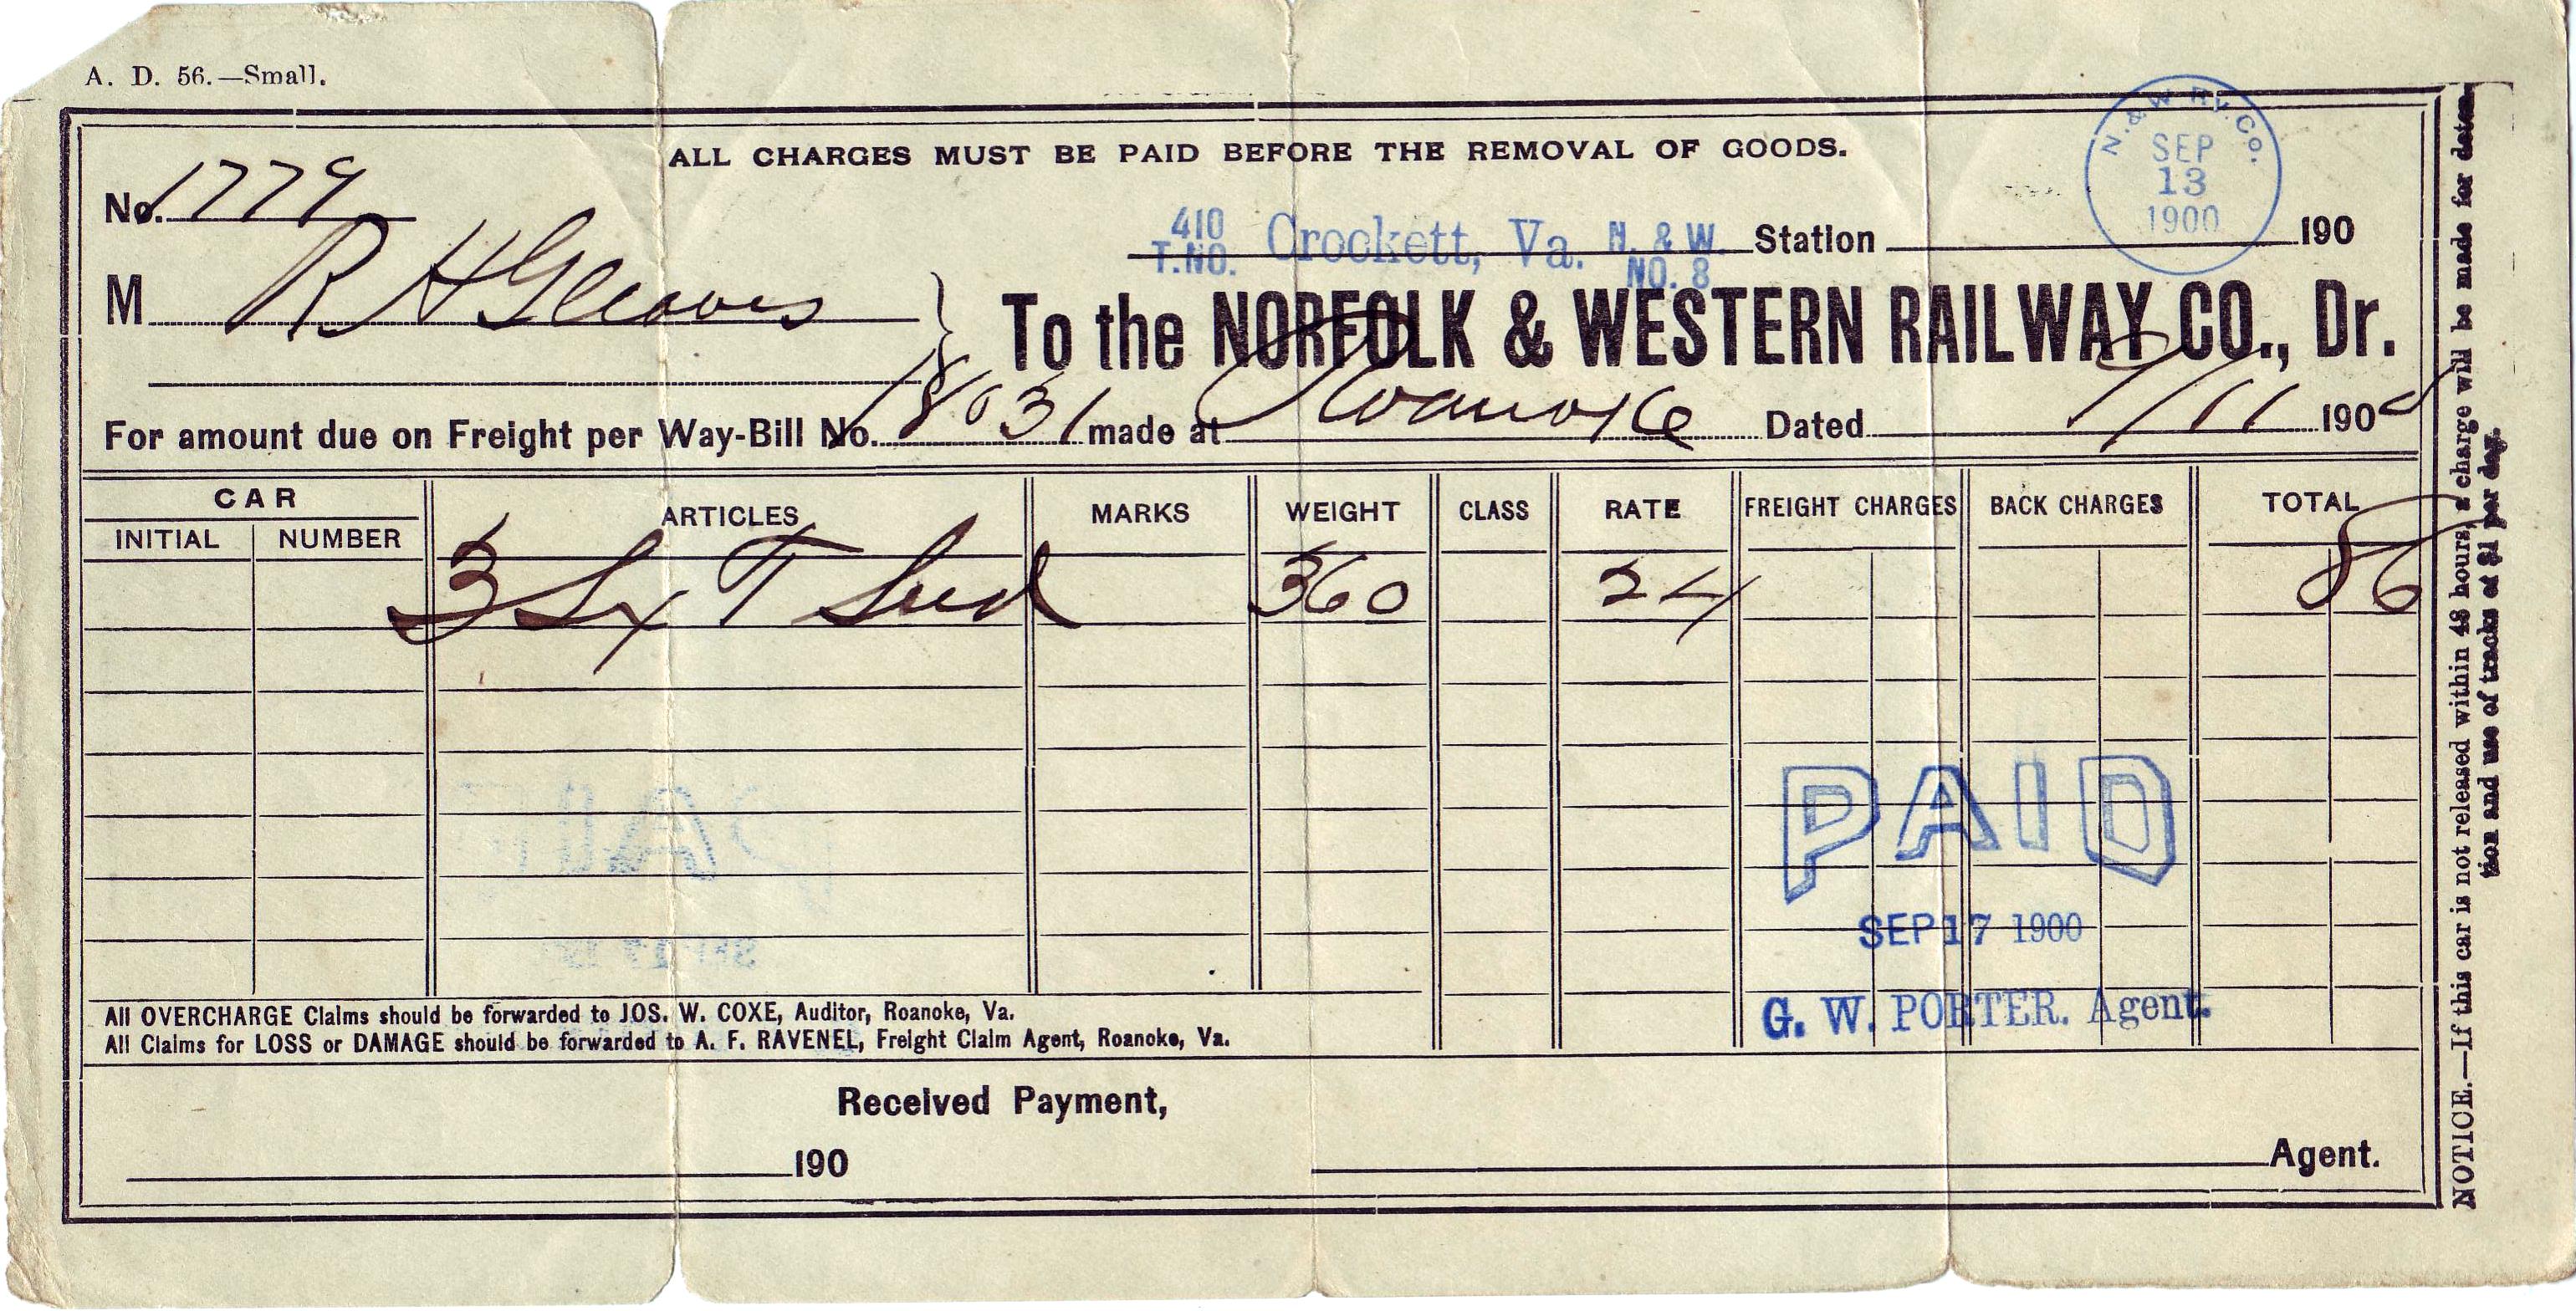 A. D. 56.—Small.
ALL CHARGES MUST BE PAID BEFORE THE REMOVAL OF GOODS.
N. & W. RY. Co.
SEP
13
1900
No. 1779
410
T.NO. Crockett, Va. N. & W.
NO. 8 Station 190
M R H Gleaves
To the NORFOLK & WESTERN RAILWAY CO., Dr.
For amount due on Freight per Way-Bill No. 18031 made at Roanoke Dated 9/11 1900
CAR ARTICLES MARKS WEIGHT CLASS RATE FREIGHT CHARGES BACK CHARGES TOTAL
INITIAL NUMBER
3 Sx T Seed 360 24 86
PAID
SEP 17 1900
G. W. PORTER. Agent.
All OVERCHARGE Claims should be forwarded to JOS. W. COXE, Auditor, Roanoke, Va.
All Claims for LOSS or DAMAGE should be forwarded to A. F. RAVENEL, Freight Claim Agent, Roanoke, Va.
Received Payment,
190 Agent.
NOTICE.—If this car is not released within 48 hours, a charge will be made for deten-
tion and use of tracks at $1 per day.